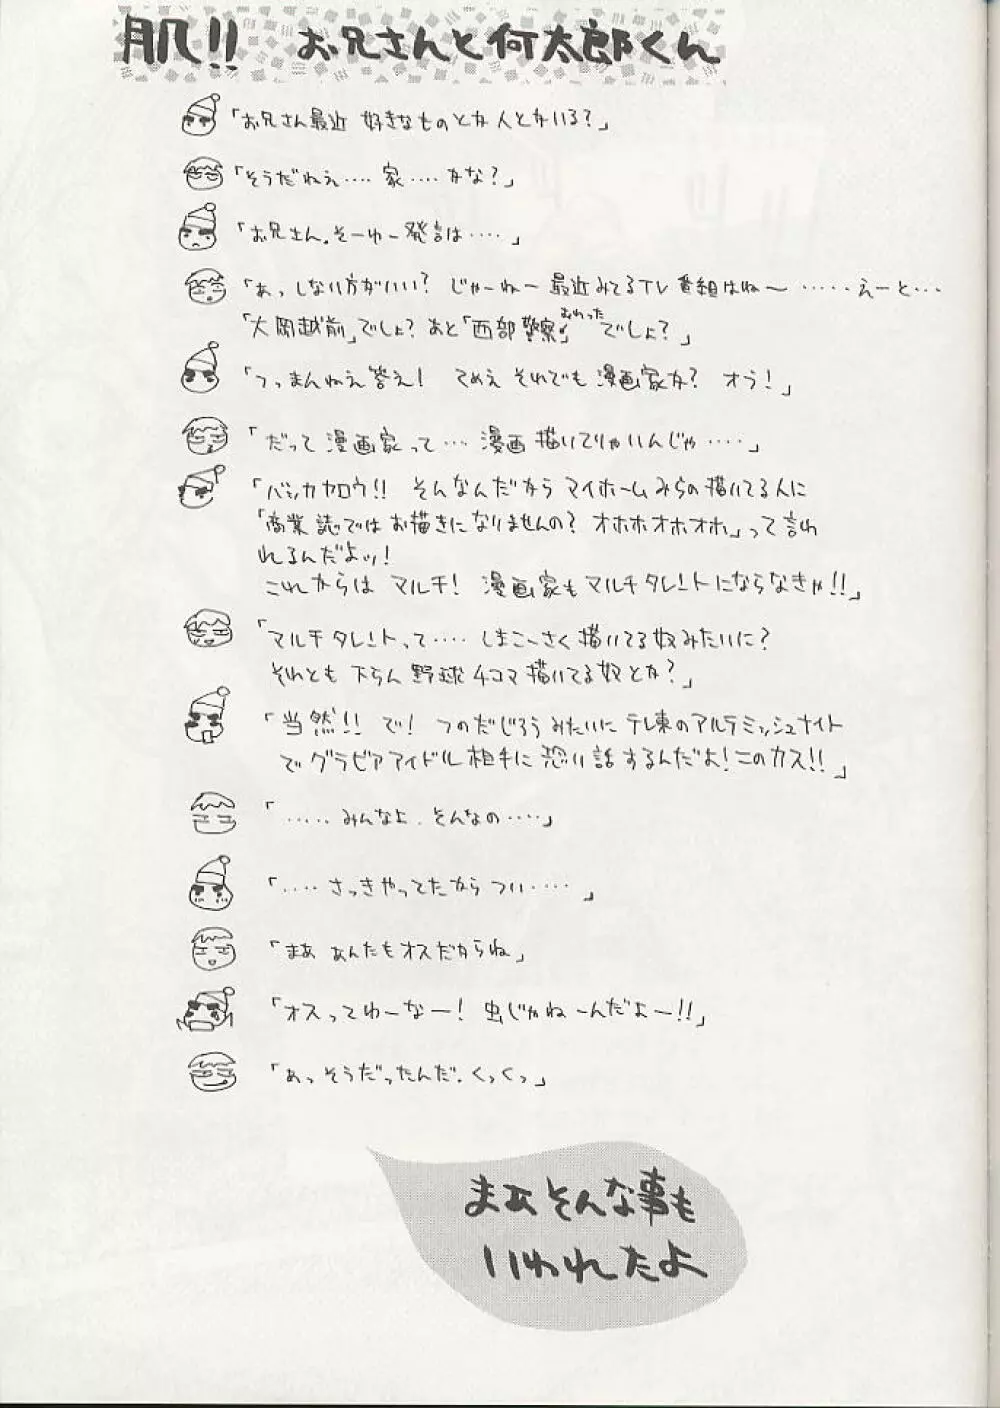 肌!! お兄さんと何太郎くん
「お兄さん最近 好きなものとか人とかいる?」
「そうだねぇ‥‥ 家‥‥かな?」
「お兄さん。そーゆー発言は‥‥」
「あっしない方がいい? じゃーねー最近みてるTV番組はね〜 ‥‥‥えーと‥‥
「大岡越前」でしょ? あと「西部警察」でしょ?」
おわった
「つっまんねえ答え! てめえ それでも漫画家か? オラ!」
「だって漫画家って‥‥ 漫画描いてりゃいんじゃ‥‥」
「バッカヤロウ!! そんなんだから マイホームみらの描いてる人に
「商業誌ではお描きになりませんの? オホホオホオホ」って言わ
れるんだよッ!
これからは マルチ! 漫画家もマルチタレントにならなきゃ!!」
「マルチタレントって‥‥ しまこーさく描いてる奴みたいに?
それとも 下らん野球4コマ描いてる奴とか?」
「当然!! で! つのだじろうみたいに テレ東のアルテミッシュナイト
でグラビアアイドル相手に 恐い話するんだよ! このカス!!」
「‥‥‥みんなよ. そんなの‥‥」
「‥‥さっきやってたから つい‥‥‥」
「まあ あんたもオスだからね」
「オスってゆーなー! 虫じゃねーんだよー!!」
「あっそうだったんだ. くっくっ」
まあそんな事も
いわれたよ